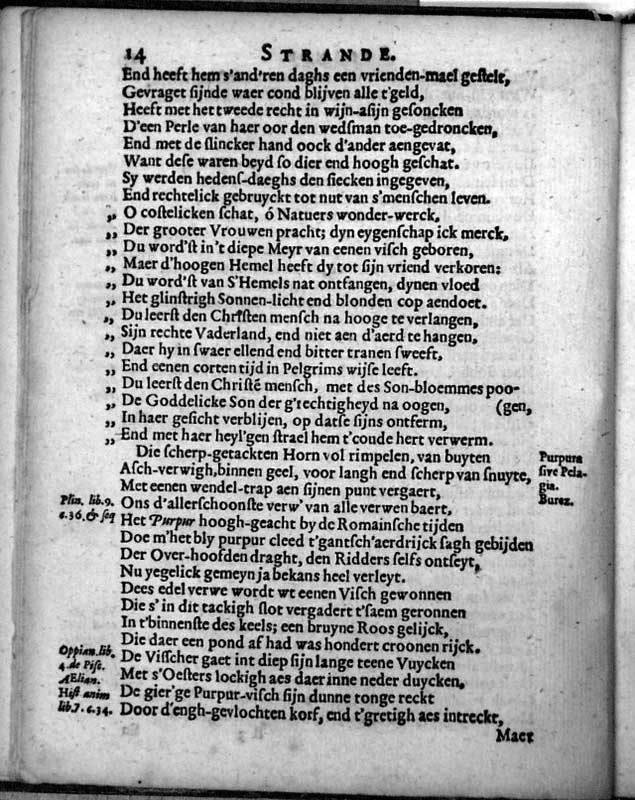 14 STRANDE.
End heeft hem s'and'ren daghs een vrienden-mael gestelt,
Gevraget sijnde waer cond blijven alle t'geld,
Heeft met het tweede recht in wijn-asijn gesoncken
D'een Perle van haer oor den wedsman toe-gedroncken,
End met de slincker hand oock d'ander aengevat,
Want dese waren beyd so dier end hoogh geschat.
Sy werden hedens-daeghs den siecken ingegeven,
End rechtelick gebruyckt tot nut van s'menschen leven.
,, O costelicken schat, ó Natuers wonder-werck,
,, Der grooter Vrouwen pracht; dyn eygenschap ick merck,
,, Du word'st in't diepe Meyr van eenen visch geboren,
,, Maer d'hoogen Hemel heeft dy tot sijn vriend verkoren:
,, Du word'st van S'Hemels nat ontfangen, dynen vloed
,, Het glinstrigh Sonnen-licht end blonden cop aendoet.
,, Du leerst den Christen mensch na hooge te verlangen,
,, Sijn rechte Vaderland, end niet aen d'aerd te hangen,
,, Daer hy in swaer ellend end bitter tranen sweeft,
,, End eenen corten tijd in Pelgrims wijse leeft.
,, Du leerst den Christẽ mensch, met des Son-bloemmes poo-
,, De Goddelicke Son der g'rechtigheyd na oogen, (gen,
,, In haer gesicht verblijen, op datse sijns ontferm,
,, End met haer heyl'gen strael hem t'coude hert verwerm.
Die scherp-getackten Horn vol rimpelen, van buyten
Asch-verwigh, binnen geel, voor langh end scherp van snuyte,
Met eenen wendel-trap aen sijnen punt vergaert,
Ons d'allerschoonste verw' van alle verwen baert,
Het Purpur hoogh-geacht by de Romainsche tijden
Doe m'het bly purpur cleed t'gantsch'aerdrijck sagh gebijden
Der Over-hoofden draght, den Ridders selfs ontseyt,
Nu yegelick gemeyn ja bekans heel verleyt.
Dees edel verwe wordt wt eenen Visch gewonnen
Die s'in dit tackigh slot vergadert t'saem geronnen
In t'binnenste des keels; een bruyne Roos gelijck,
Die daer een pond af had was hondert croonen rijck.
De Visscher gaet int diep sijn lange teene Vuycken
Met s'Oesters lockigh aes daer inne neder duycken,
De gier'ge Purpur-visch sijn dunne tonge reckt
Door d'engh-gevlochten korf, end t'gretigh aes intreckt,
Maer
Purpura
sive Pela-
gia.
Burez.
Plin. lib. 9.
c. 36. & seq
Oppian. lib.
4. de Pisc.
AElian.
Hist anim
lib. 7. c. 34.